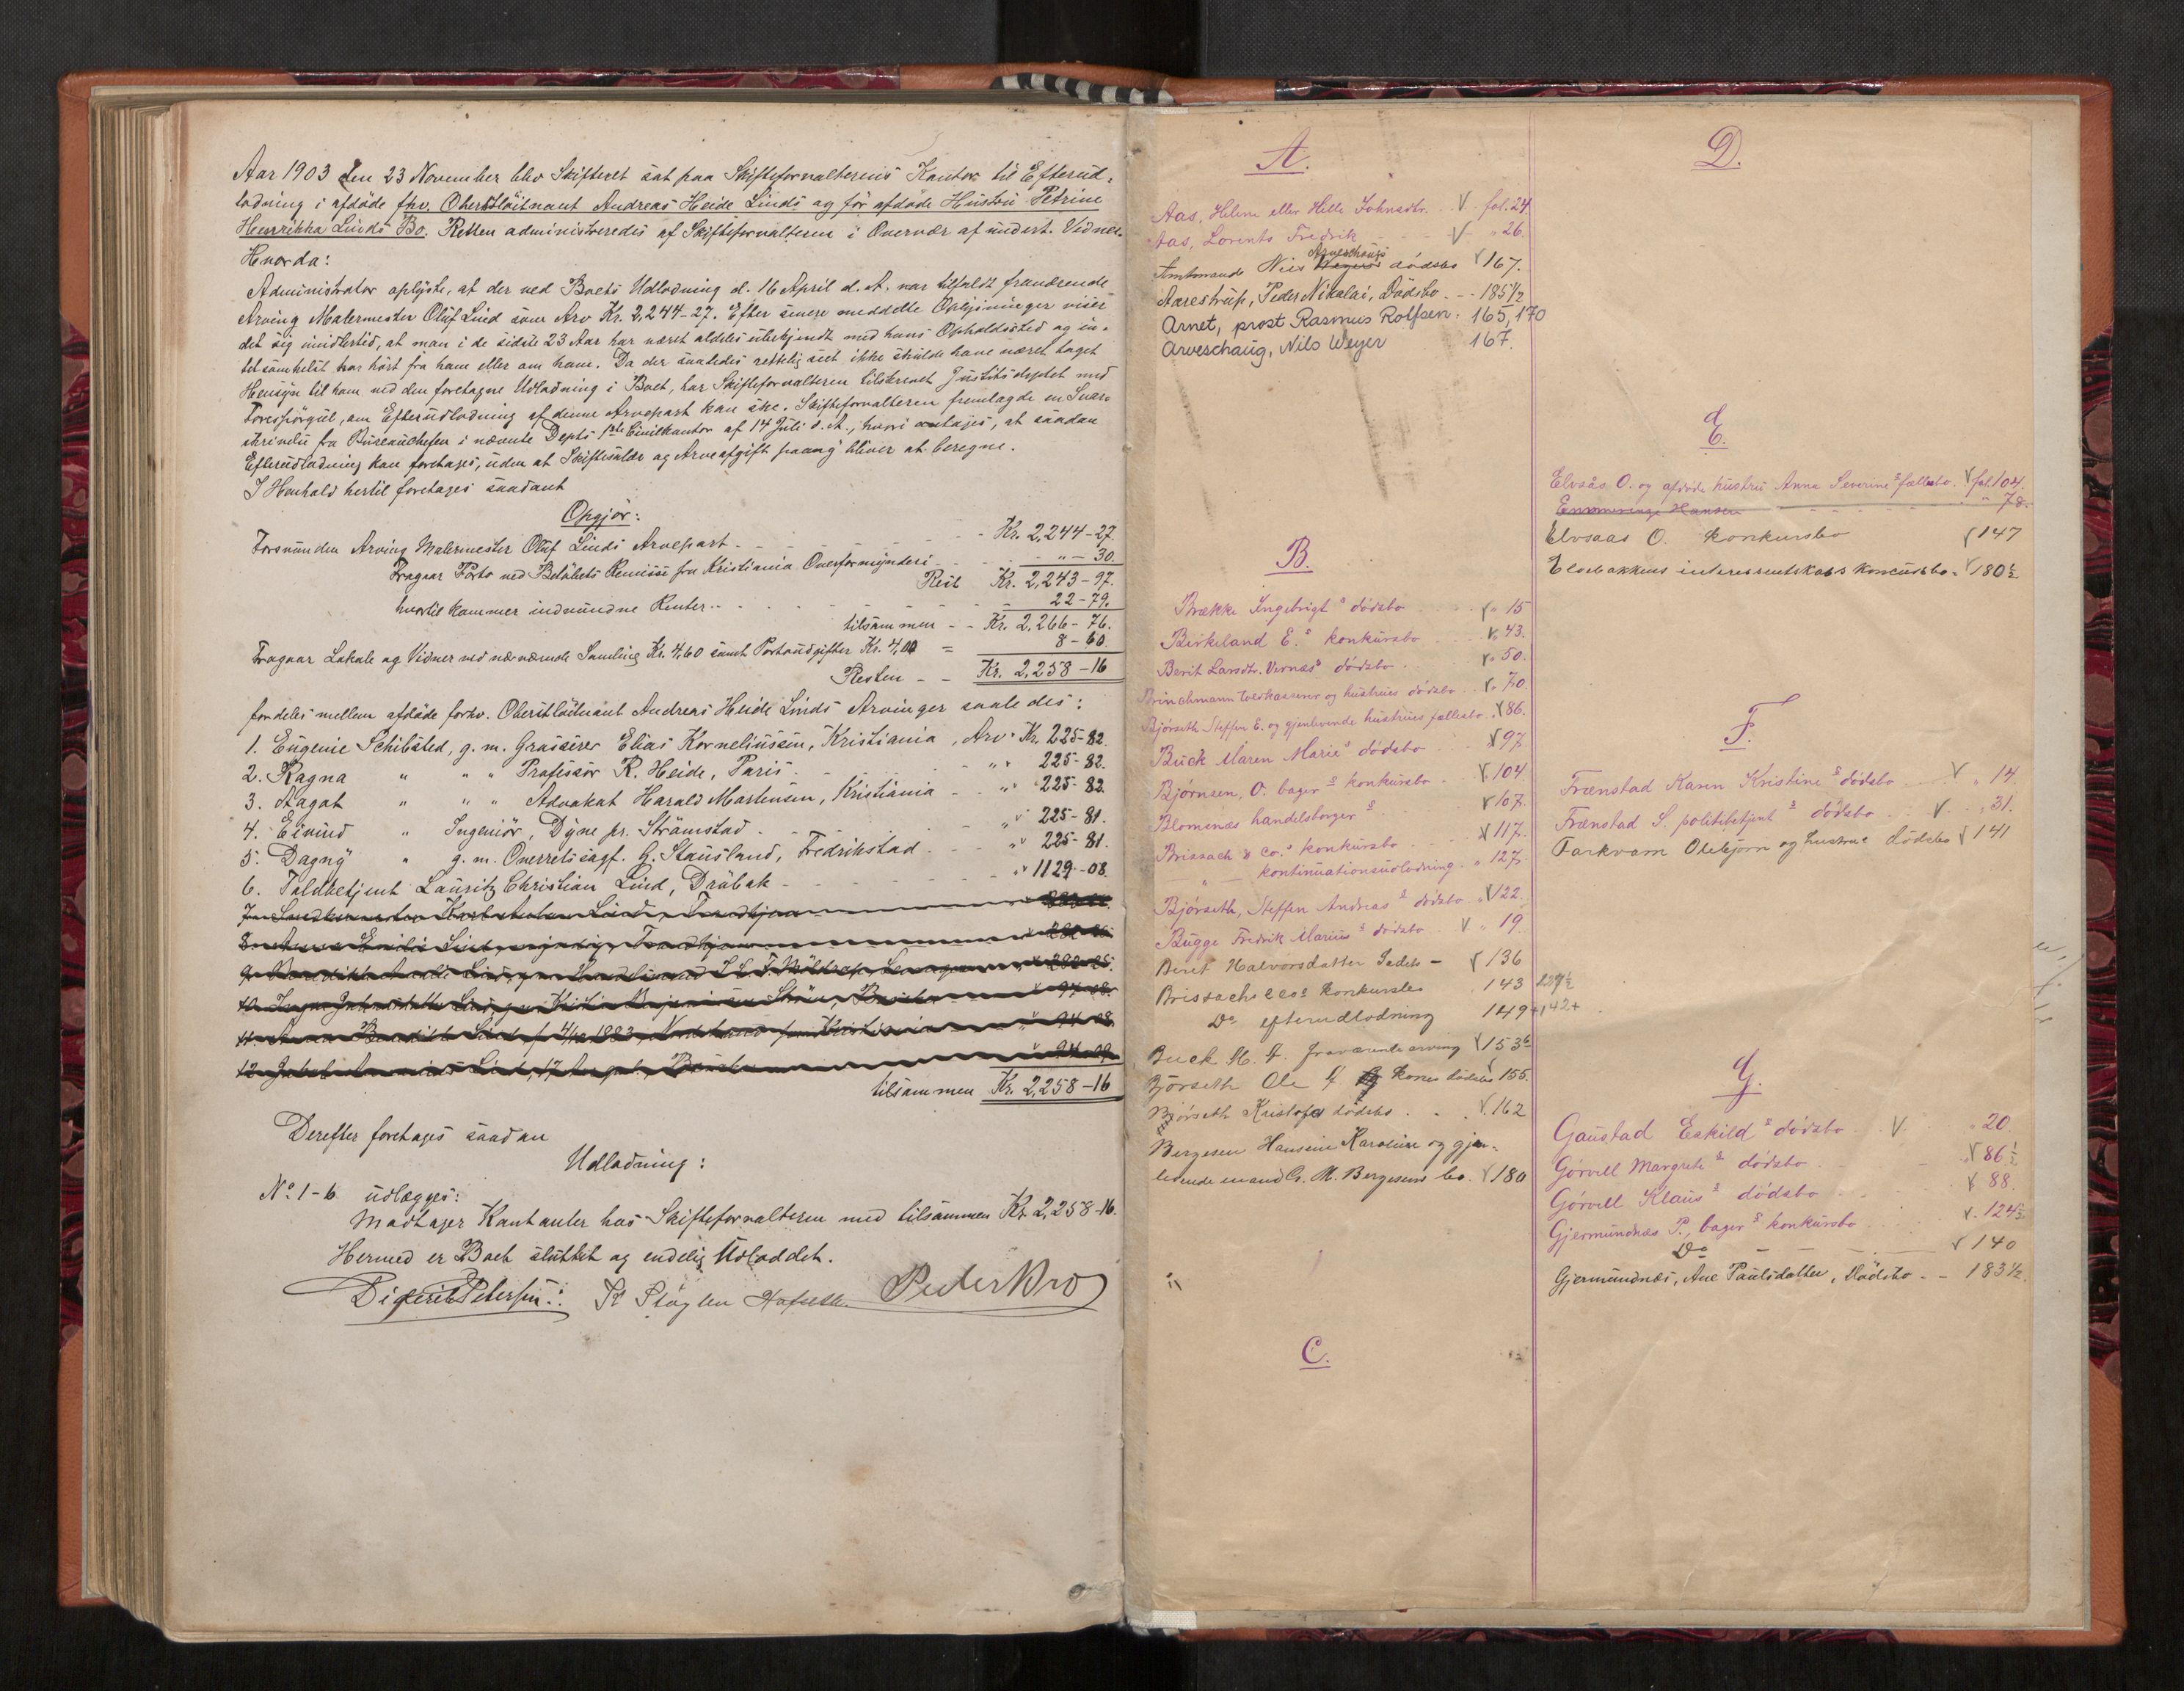 Aar 1903 den 23 November blev Skifteret sat paa Skifteforvalterens Kontor til Efterud-
lodning i afdøde fhv. Oberstløitnant Andreas Heide Linds og før afdøde Hustru Petrine
Henrikka Linds Bo. Retten administreredes af Skifteforvalteren i Overvær af undert. Vidner.
Hvorda:
Administrator oplyste, at der ved Boets Udlodning d. 16 April d. A. var tilfaldt fraværende
Arving Malermester Oluf Lind som Arv Kr. 2,244-27. Efter senere meddelte Oplysninger viser
det sig imidlertid, at man i de sidste 23 Aar har været aldeles ubekjendt med hans Opholdssted og in-
tet somhelst har hørt fra ham eller om ham. Da der saaledes rettelig seet ikke skulde have været taget
Hensyn til ham ved den foretagne Udlodning i Boet, har Skifteforvalteren tilskrevet Justitsdeptet med
Forespørgsel, om Efterudlodning af denne Arvepart kan ske. Skifteforvalteren fremlagde en Svar-
skrivelse fra Bureauchefen i nævnte Depts 1ste Civilkontor af 14 Juli d. A., hvori antages, at saadan
Efterudlodning kan foretages, uden at Skiftesalær og Arveafgift paany bliver at beregne.
I Henhold hertil foretages saadant
Opgjør:
Forsvunden Arving Malermester Oluf Linds Arvepart - - - Kr. 2,244-27.
Fragaar Porto ved Beløbets Remisse fra Kristiania Overformynderi - - " - 30.
Rest Kr. 2,243-97.
hvortil kommer indvundne Renter - - - 22-79.
tilsammen - - Kr. 2,266-76.
Fragaar Lokale og Vidner ved nærværende Samling Kr. 4,60 samt Portoudgifter Kr. 4,00 = 8-60
Resten - - Kr. 2,258-16
fordeles mellem afdøde forhv. Oberstløitnant Andreas Heide Linds Arvinger saaledes:
1. Eugenie Schibsted, g. m. Grosserer Elias Korneliussen, Kristiania, Arv Kr. 225-82.
2. Ragna " " " Professor R. Heide, Paris - - " 225-82.
3. Aagot " " " Advokat Harald Mortensen, Kristiania - - " 225-82.
4. Eivind " Ingeniør, Dyne pr. Strømstad - - " 225-81.
5. Dagny " g. m. Overretssagf. G. Stausland, Fredrikstad - - " 225-81.
6. Toldbetjent Lauritz Christian Lind, Drøbak - - " 1129-08.
tilsammen Kr. 2,258-16
Derefter foretages saadan
Udlodning:
No. 1-6 udlægges:
Modtager Kontanter hos Skifteforvalteren med tilsammen Kr. 2,258-16.
Hermed er Boet sluttet og endelig Udloddet.
Diderik Petersen. Peder Bro
A.
Aas, Helene eller Helle Johnsdtr. V fol. 24
Aas, Lorents Fredrik - - V " 26.
Arveschougs
Amtmand Niels dødsbo V 167.
Aarestrup, Peder Nikolai, Dødsbo - - 185 1/2
Arnet, prost Rasmus Rolfsen. 165, 170
Arveschaug, Nils Weyer 167.
B.
Brække Ingebrigts dødsbo V " 15
Birkeland E.s konkursbo V " 43.
Berit Larsdtr. Vernæs dødsbo V " 50.
Brinchmann toldkasserer og hustrues dødsbo V " 70.
Bjørseth Steffen E. og gjenlevende hustrues fællesbo " V 86.
Buck Maren Maries dødsbo V 97
Bjørnsen, O. bagers konkursbo V 104
Blomsnæs handelsborgers V 107.
Brissach & Co.s konkursbo V 117.
" kontinuationsudlodning " 127.
Bjørseth, Steffen Andreas dødsbo V 122.
Bugge Fredrik Marius dødsbo V " 19.
Beret Halvorsdatter - V 136
Brissachs & Cos konkursbo 143 229 1/2
Do efterudlodning 149 + 142+
Buck M. A. fraværende arving V 153 1/2
Bjørseth Ole og kones dødsbo V 155.
Bjørseth Kristofer dødsbo . . V. 162
Bergesen Hansine Karoline og gjen-
levende mand Cr. M. Bergesens bo. V 180
C.
D.
E.
Elvsås O. og afdøde hustru Anna Severines fællesbo. V fol. 104.
Emmerentze Hansen - - - " 78.
Elvsaas O. konkursbo V 147
Elvebakkens interessentskabs konkursbo - V 180 1/2
F.
Frænstad Karen Kristines dødsbo V " 14
Frænstad S. politibetjents dødsbo V " 31.
Farkvam Olebjørn og hustrus dødsbo V 141
G.
Gaustad Eskilds dødsbo V. " 20.
Gørvell Margretes dødsbo V 86 1/2
Gørvell Klaus's dødsbo V 88.
Gjermundnæs P., bagers konkursbo V. 124 1/2
Do - - - V 140
Gjermundnes, Ane Paulsdatter, Dødsbo - - 183 1/2.